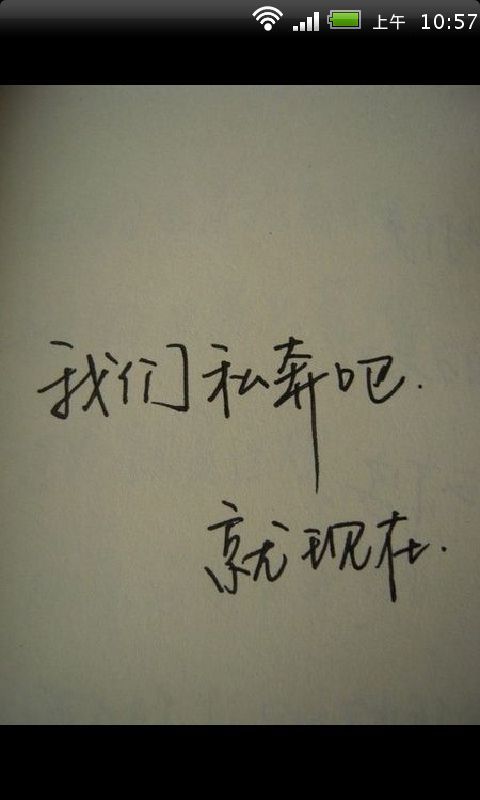 上午 10:57
我们私奔吧.
就现在.